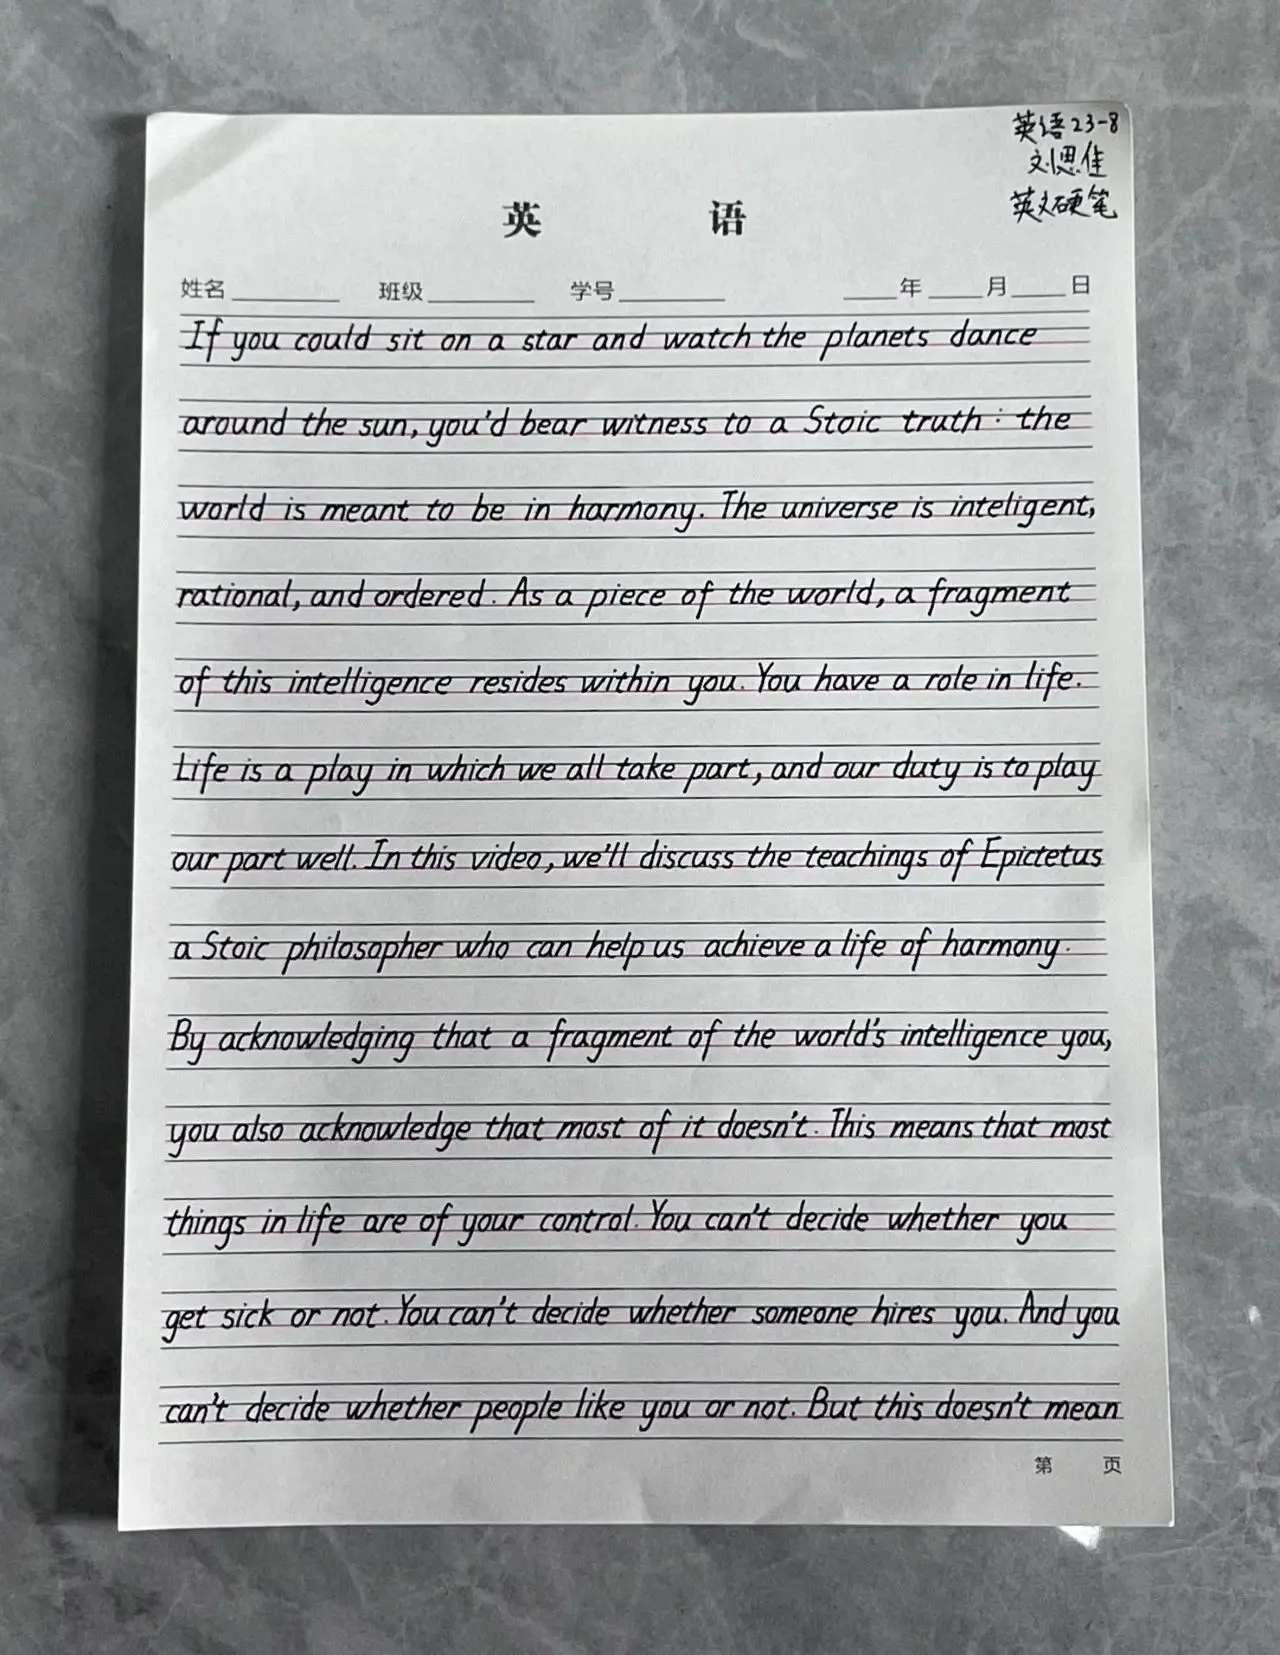 英语23-8
刘思佳
英文硬笔
英 语
姓名 班级 学号 年 月 日
If you could sit on a star and watch the planets dance
around the sun, you'd bear witness to a Stoic truth: the
world is meant to be in harmony. The universe is inteligent,
rational, and ordered. As a piece of the world, a fragment
of this intelligence resides within you. You have a role in life.
Life is a play in which we all take part, and our duty is to play
our part well. In this video, we'll discuss the teachings of Epictetus
a Stoic philosopher who can help us achieve a life of harmony.
By acknowledging that a fragment of the world's intelligence you,
you also acknowledge that most of it doesn't. This means that most
things in life are of your control. You can't decide whether you
get sick or not. You can't decide whether someone hires you. And you
can't decide whether people like you or not. But this doesn't mean
第 页